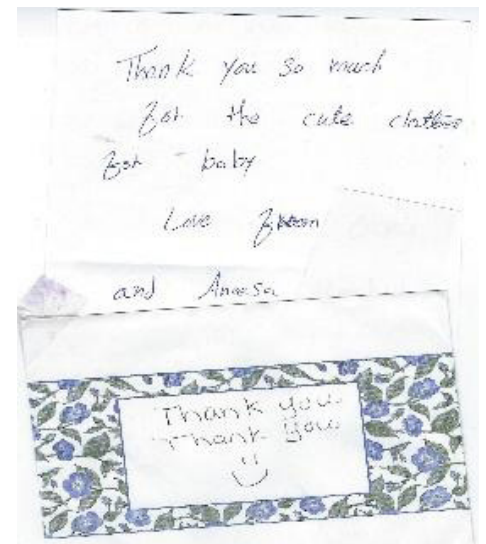 Thank you so much
for the cute clothes
for baby
Love from
and Aneesa
Thank you
Thank you